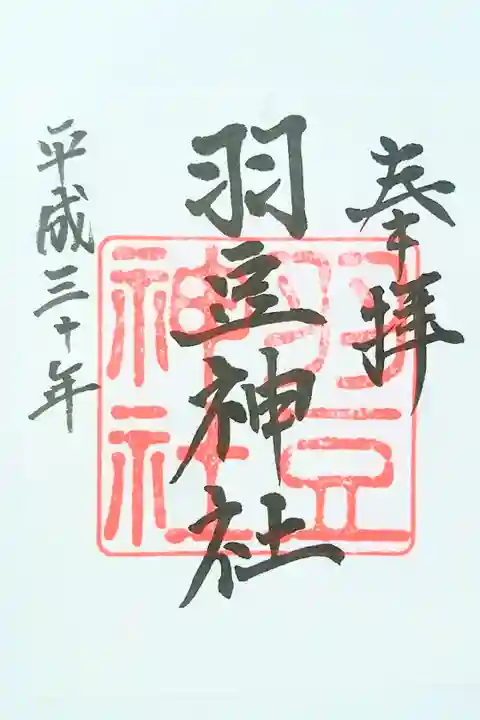 奉拝
羽豆神社
羽豆神社
平成三十年